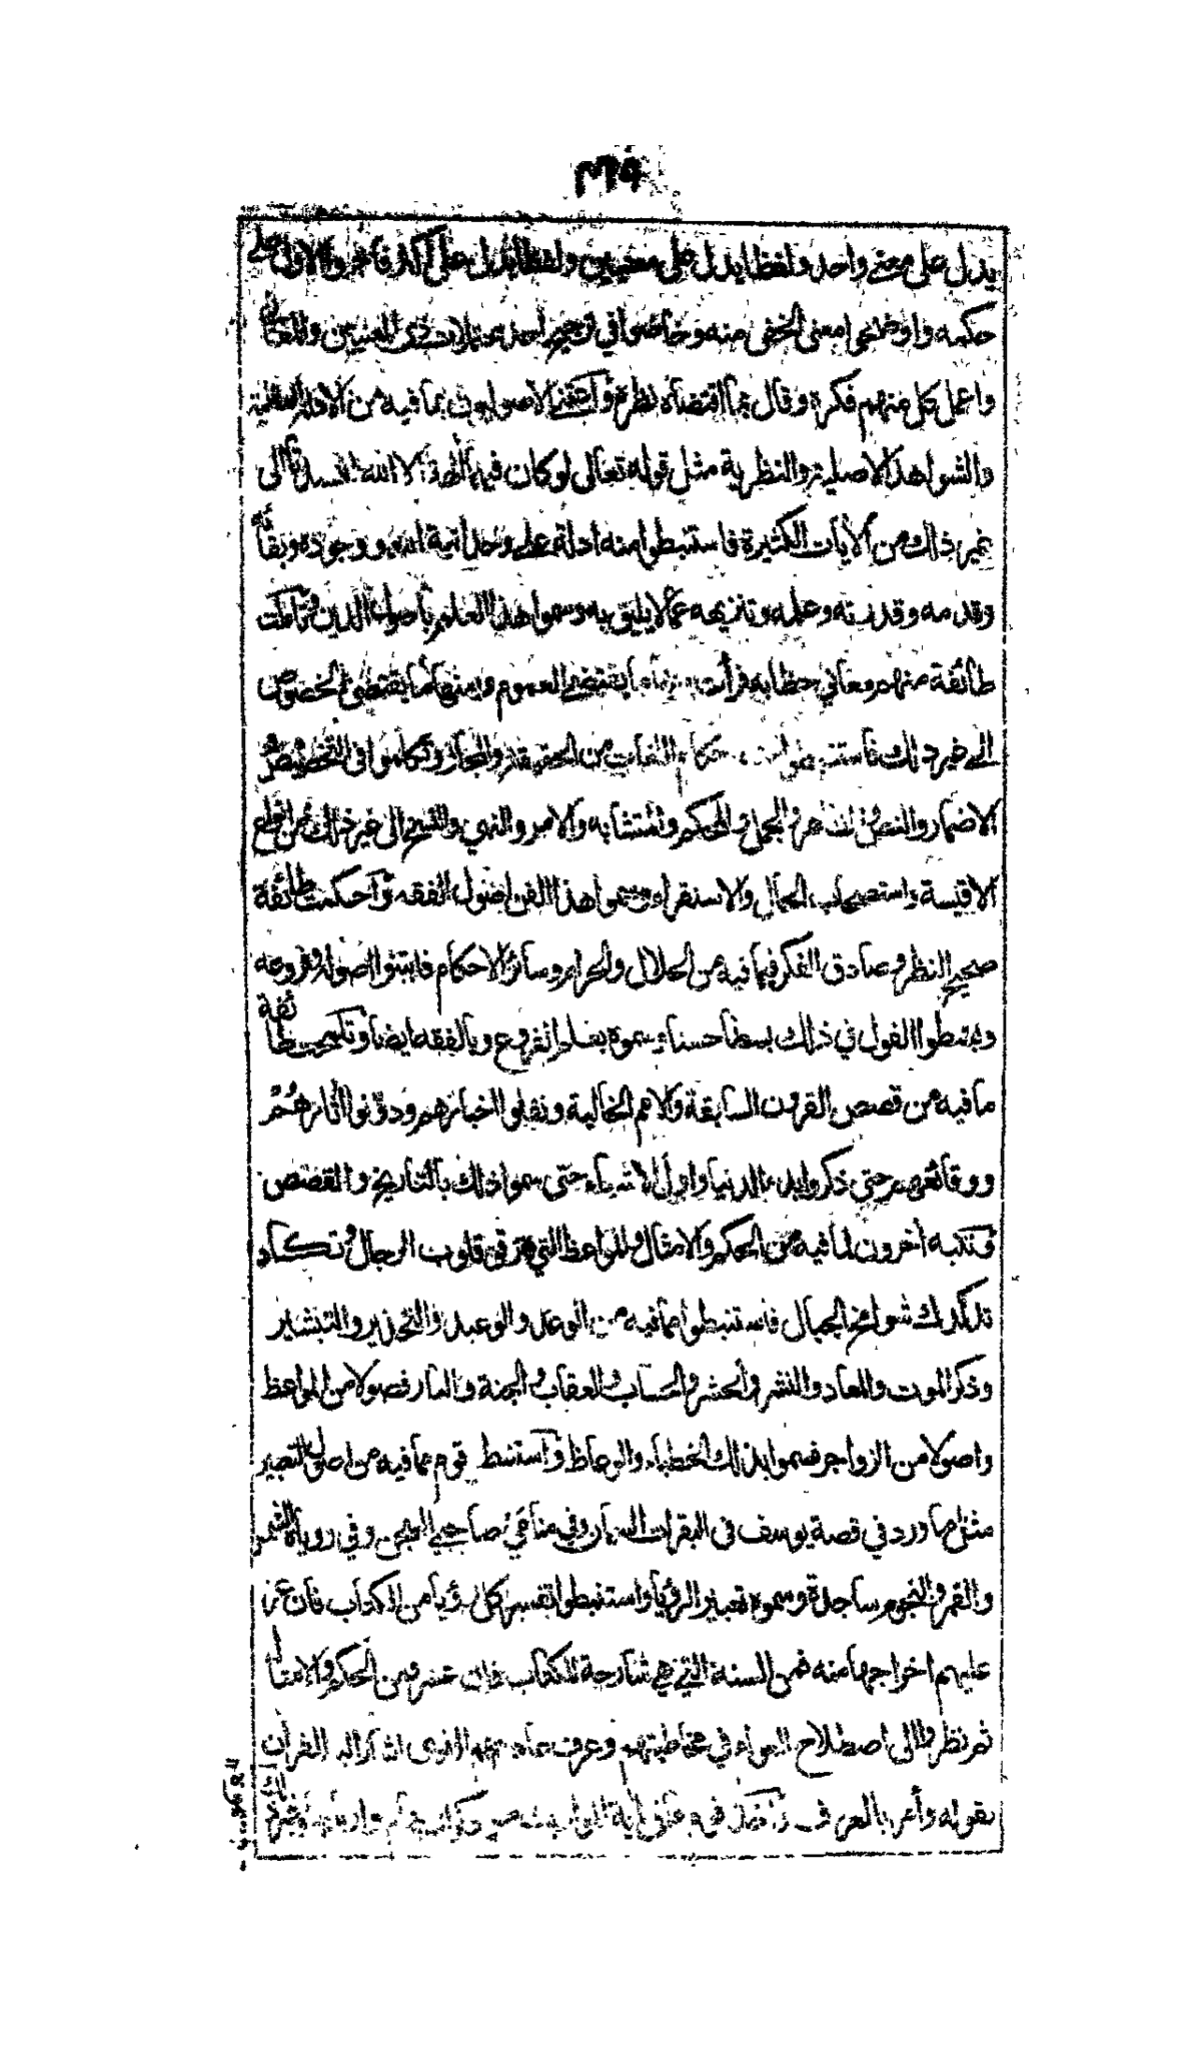 ٣٦٩
يدل على معنى واحد ولفظا يدل على معنيين ولفظا يدل على اكثر فاجروا الاول على
حكمه واوضحوا معنى الخفي منه وخاضوا في ترجيح احد محتملات ذي المعنيين والمعاني
واعمل كل منهم فكره وقال بما اقتضاه نظره واعتنى الاصوليون بما فيه من الادلة العقلية
والشواهد الاصلية والنظرية مثل قوله تعالى لو كان فيهما الهة الا الله لفسدتا الى
غير ذلك من الايات الكثيرة فاستنبطوا منه ادلة على وحدانية الله ووجوده وبقائه
وقدمه وقدرته وعلمه وتنزيهه عما لا يليق به وسموا هذا العلم باصول الدين وتأملت
طائفة منهم معاني خطابه فرأت منها ما يقتضي العموم ومنها ما يقتضي الخصوص
الى غير ذلك فاستنبطوا منه احكام اللغات من الحقيقة والمجاز وتكلموا في التخصيص و
الاضمار والنص والظاهر والمجمل والمحكم والمتشابه والامر والنهي والنسخ الى غير ذلك من انواع
الاقيسة واستصحاب الحال والاستقراء وسموا هذا الفن اصول الفقه واحكمت طائفة
صحيح النظر وصادق الفكر فيما فيه من الحلال والحرام وسائر الاحكام فابتنوا اصوله وفروعه
وبسطوا القول في ذلك بسطا حسنا وسموه بعلم الفروع وبالفقه ايضا وتلمحت طائفة
ما فيه من قصص القرون السابقة والامم الخالية ونقلوا اخبارهم ودونوا اثارهم
ووقائعهم حتى ذكروا بدء الدنيا واول الاشياء حتى سموا ذلك بالتاريخ والقصص
وتنبه آخرون لما فيه من الحكم والامثال والمواعظ التي ترقق قلوب الرجال وتكاد
تدكدك شوامخ الجبال فاستنبطوا مما فيه من الوعد والوعيد والتحذير والتبشير
وذكر الموت والمعاد والنشر والحشر والحساب والعقاب والجنة والنار فصولا من المواعظ
واصولا من الزواجر فسموا بذلك الخطباء والوعاظ واستنبط قوم مما فيه من اصول التعبير
مثل ما ورد في قصة يوسف في البقرات السمان وفي منامي صاحبي السجن وفي روياه الشمس
والقمر والنجوم ساجدة وسموه تعبير الرؤيا واستنبطوا تفسير كل رؤيا من الكتاب فان عز
عليهم اخراجها منه فمن السنة التي هي شارحة للكتاب فان عسر فمن الحكم والامثال
ثم نظروا الى اصطلاح العوام في مخاطبتهم وعرف عاداتهم الذي اشار اليه القران
بقوله وأمر بالعرف واخذ قوم مما في آية المواريث من ذكر السهام واربابها وغير ذلك